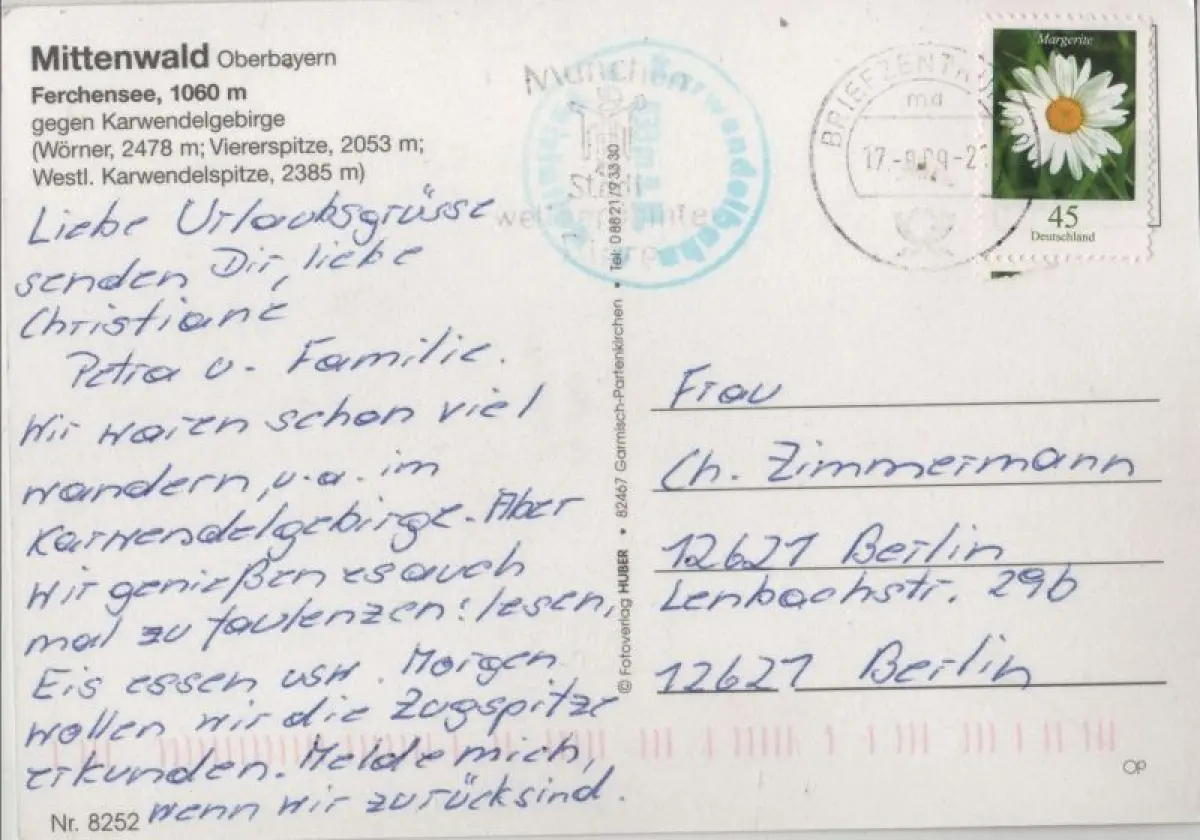 Mittenwald Oberbayern
Ferchensee, 1060 m
gegen Karwendelgebirge
(Wörner, 2478 m; Viererspitze, 2053 m;
Westl. Karwendelspitze, 2385 m)
Liebe Urlaubsgrüsse
senden Dir, liebe
Christiane
Petra u. Familie.
Wir waren schon viel
wandern, u.a. im
Karwendelgebirge. Aber
wir genießen es auch
mal zu faulenzen: lesen,
Eis essen usw. Morgen
wollen wir die Zugspitze
erkunden. Melde mich,
wenn wir zurück sind.
Nr. 8252
© Fotoverlag HUBER • 82467 Garmisch-Partenkirchen • Tel. 08821/93330
München
Stadt
Karwendelbahn
BRIEFZENTRUM
md
Margerite
45
Deutschland
Frau
Ch. Zimmermann
12621 Berlin
Lenbachstr. 29b
12621 Berlin
OP